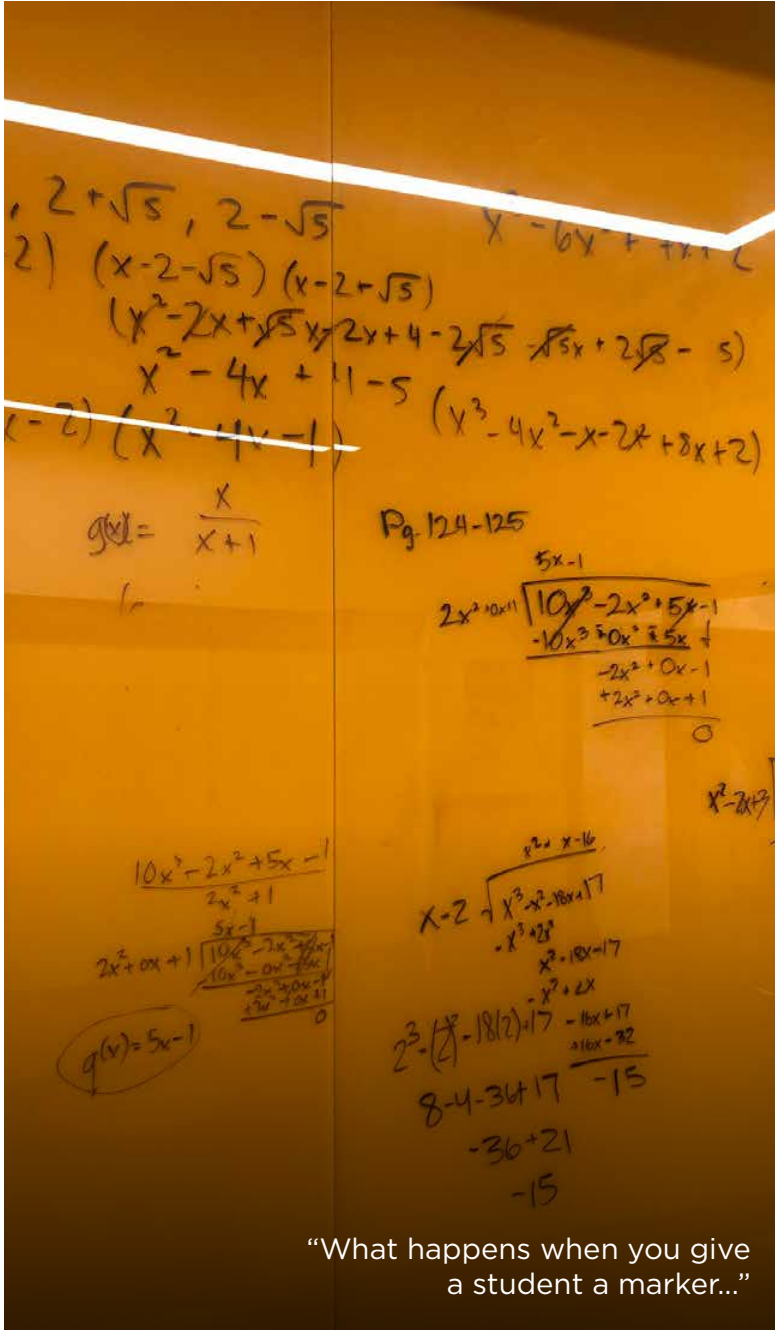 , 2+√5, 2-√5
x³-6x²+7x+2
2) (x-2-√5)(x-2+√5)
(x²-2x+√5x-2x+4-2√5-√5x+2√5-5)
x²-4x+4-5
(x-2)(x²-4x-1)
(x³-4x²-x-2x²+8x+2)
g(x)= x
x+1
Pg. 124-125
5x-1
2x²+0x+1 10x³-2x²+5x-1
-10x³-0x²-5x
-2x²+0x-1
+2x²+0x+1
0
x²-2x+3
10x³-2x²+5x-1
2x²+1
5x-1
2x²+0x+1 10x³-2x²+5x-1
10x³-0x²-5x
-2x²+0x-1
+2x²+0x+1
0
q(x)=5x-1
x²+x-16
x-2 √x³-x²-18x+17
-x³+2x²
x²-18x-17
-x²+2x
-16x+17
+16x-32
-15
2³-(2)²-18(2)+17
8-4-36+17
-36+21
-15
“What happens when you give
a student a marker...”